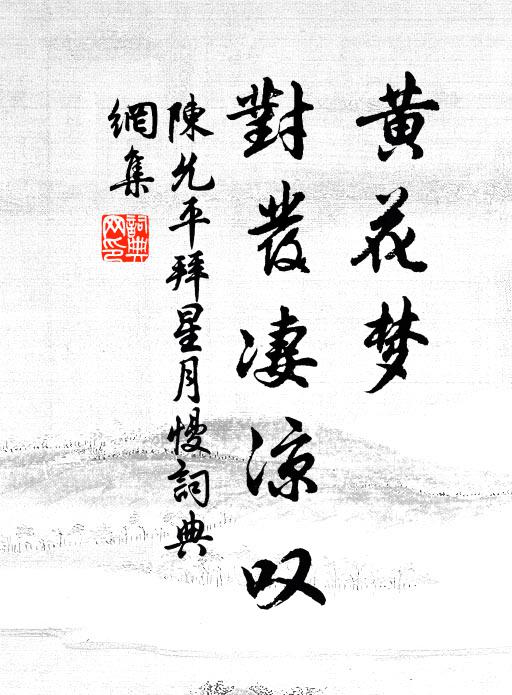 黄花梦
對發凄涼叹
陳允平拜星月慢詞典
網集
詞典
网印